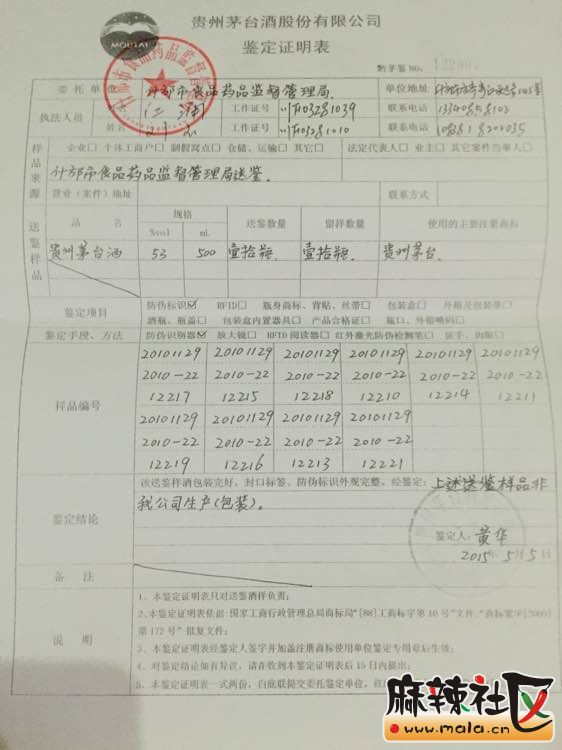 MOUTAI
贵州茅台酒股份有限公司
鉴定证明表
什邡市食品药品监督管理局
委托单位 什邡市食品药品监督管理局 单位地址
执法人员 江 工作证号 联系电话
姓名 工作证号 联系电话
样品来源 企业□ 个体工商户□ 制假窝点□ 仓储、运输□ 其它□ 法定代表人□ 业主□ 其它案件当事人□
什邡市食品药品监督管理局送鉴.
营业（案件）地址 联系方式
送鉴样品 品名 规格 送鉴数量 留样数量 使用的主要注册商标
%vol mL
贵州茅台酒 53 500 壹拾瓶. 壹拾瓶. 贵州茅台.
鉴定项目 防伪标识☑ RFID□ 瓶身商标、背贴、丝带□ 包装盒□ 外箱及包装带□
酒瓶、瓶盖□ 包装盒内置器具□ 产品合格证□ 瓶口、外箱喷码□
鉴定手段、方法 防伪识别器☑ 放大镜□ RFID阅读器□ 红外激光防伪检测笔□
样品编号
20101129 20101129 20101129 20101129 20101129 20101129
2010-22 2010-22 2010-22 2010-22 2010-22 2010-22
12217 12215 12218 12210 12214 12211
20101129 20101129 20101129 20101129
2010-22 2010-22 2010-22 2010-22
12219 12216 12213 12221
鉴定结论 该送鉴样酒包装完好、封口标签、防伪标识外观完整、经鉴定：上述送鉴样品非
我公司生产(包装)。
鉴定人：黄华
2015年5月5日
备注
说明
1、本鉴定证明表只对送鉴酒样负责；
2、本鉴定证明表依据：国家工商行政管理总局商标局“[88]工商标字第10号”文件、“商标案字[2000]
第172号”批复文件；
3、本鉴定证明表经鉴定人签字并加盖注册商标使用单位鉴定专用章后生效；
4、对鉴定结论如有异议，请在收到本鉴定证明表后15日内提出；
5、本鉴定证明表一式两份，白底联提交委托鉴定单位，红
麻辣社区
www.mala.cn